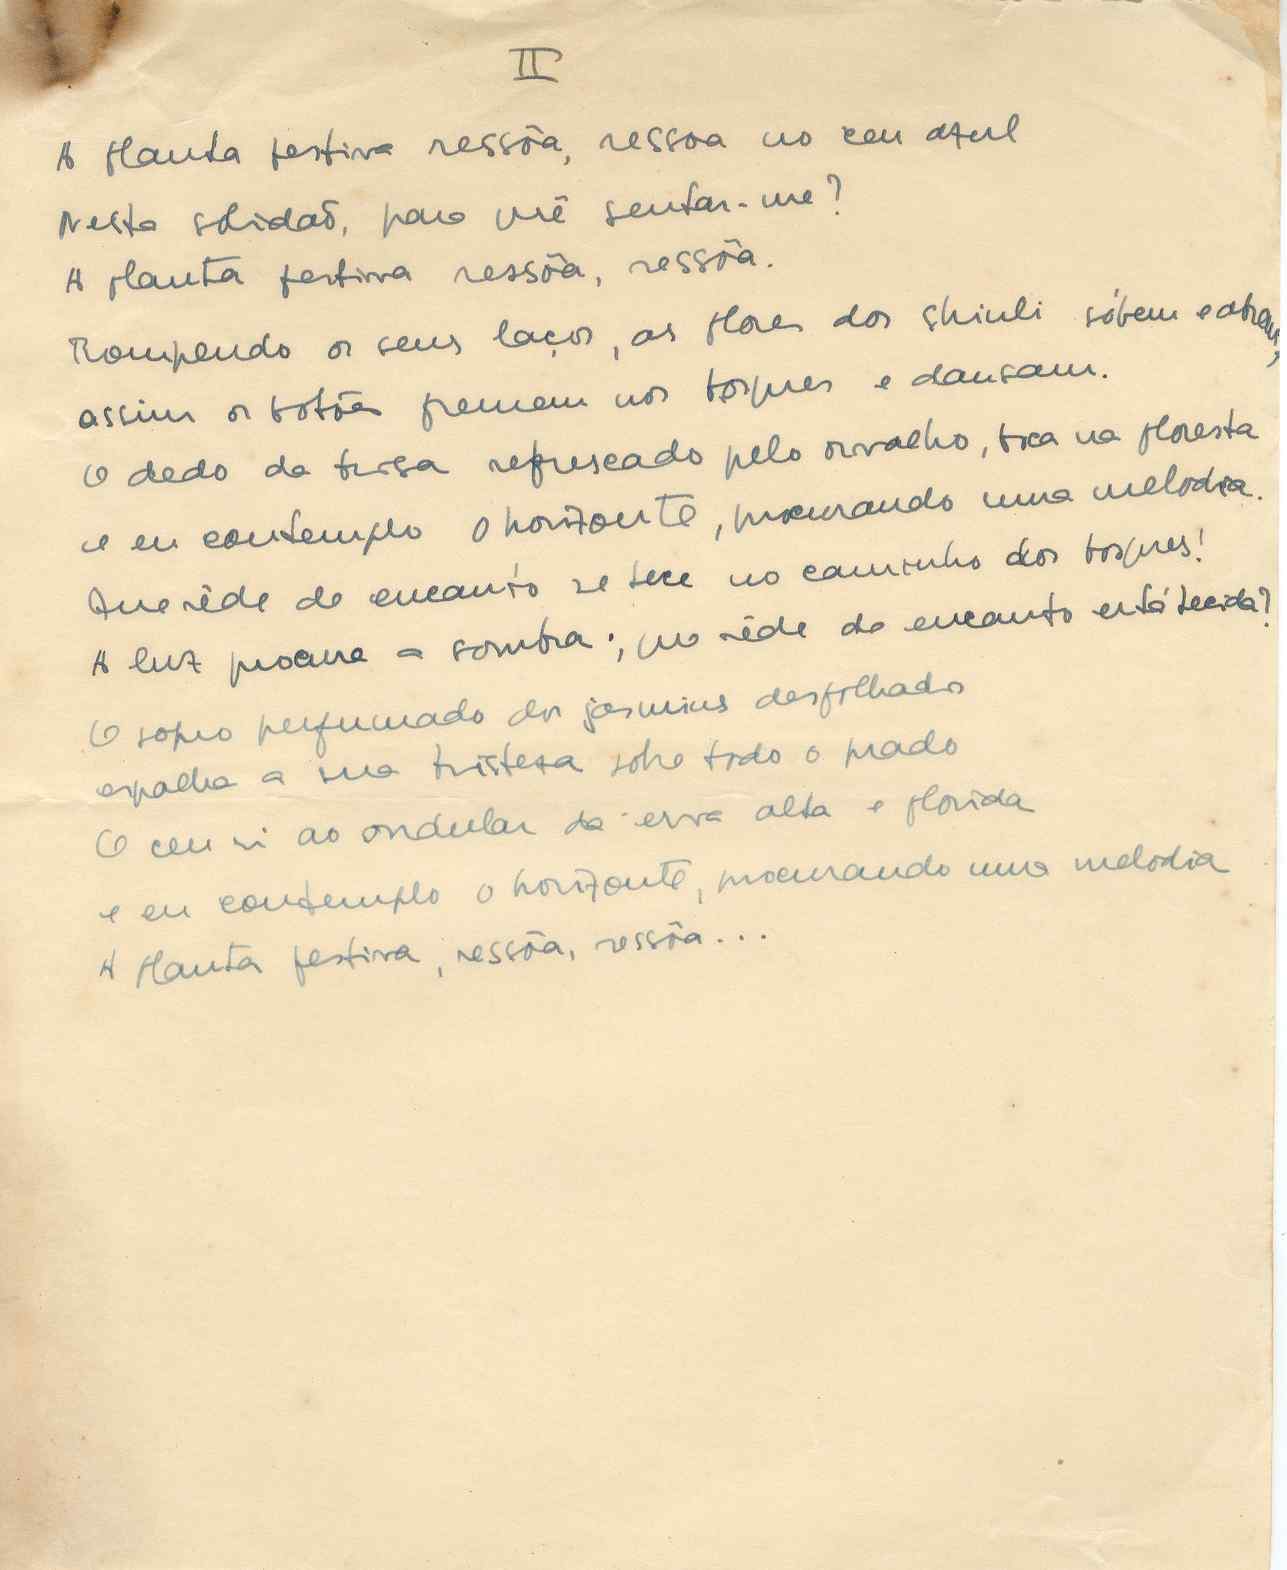 II
A flauta festiva ressôa, ressoa no ceu azul
Nesta solidaõ, para quê sentar-me?
A flauta festiva ressôa, ressôa.
Rompendo os seus laços, as flores dos shiuli sóbem e abrem,
assim os botões fremem nos bosques e dansam.
O dedo da brisa refrescado pelo orvalho, toca na floresta
e eu contemplo o horizonte, procurando uma melodia.
Que rêde de encanto se tece no caminho dos bosques!
A luz procura a sombra; que rêde de encanto está tecida?
O sopro perfumado dos jasmins desfolhados
espalha a sua tristeza sobre todo o prado
O ceu ri ao ondular da erva alta e florida
e eu contemplo o horizonte, procurando uma melodia
A flauta festiva, ressôa, ressôa...